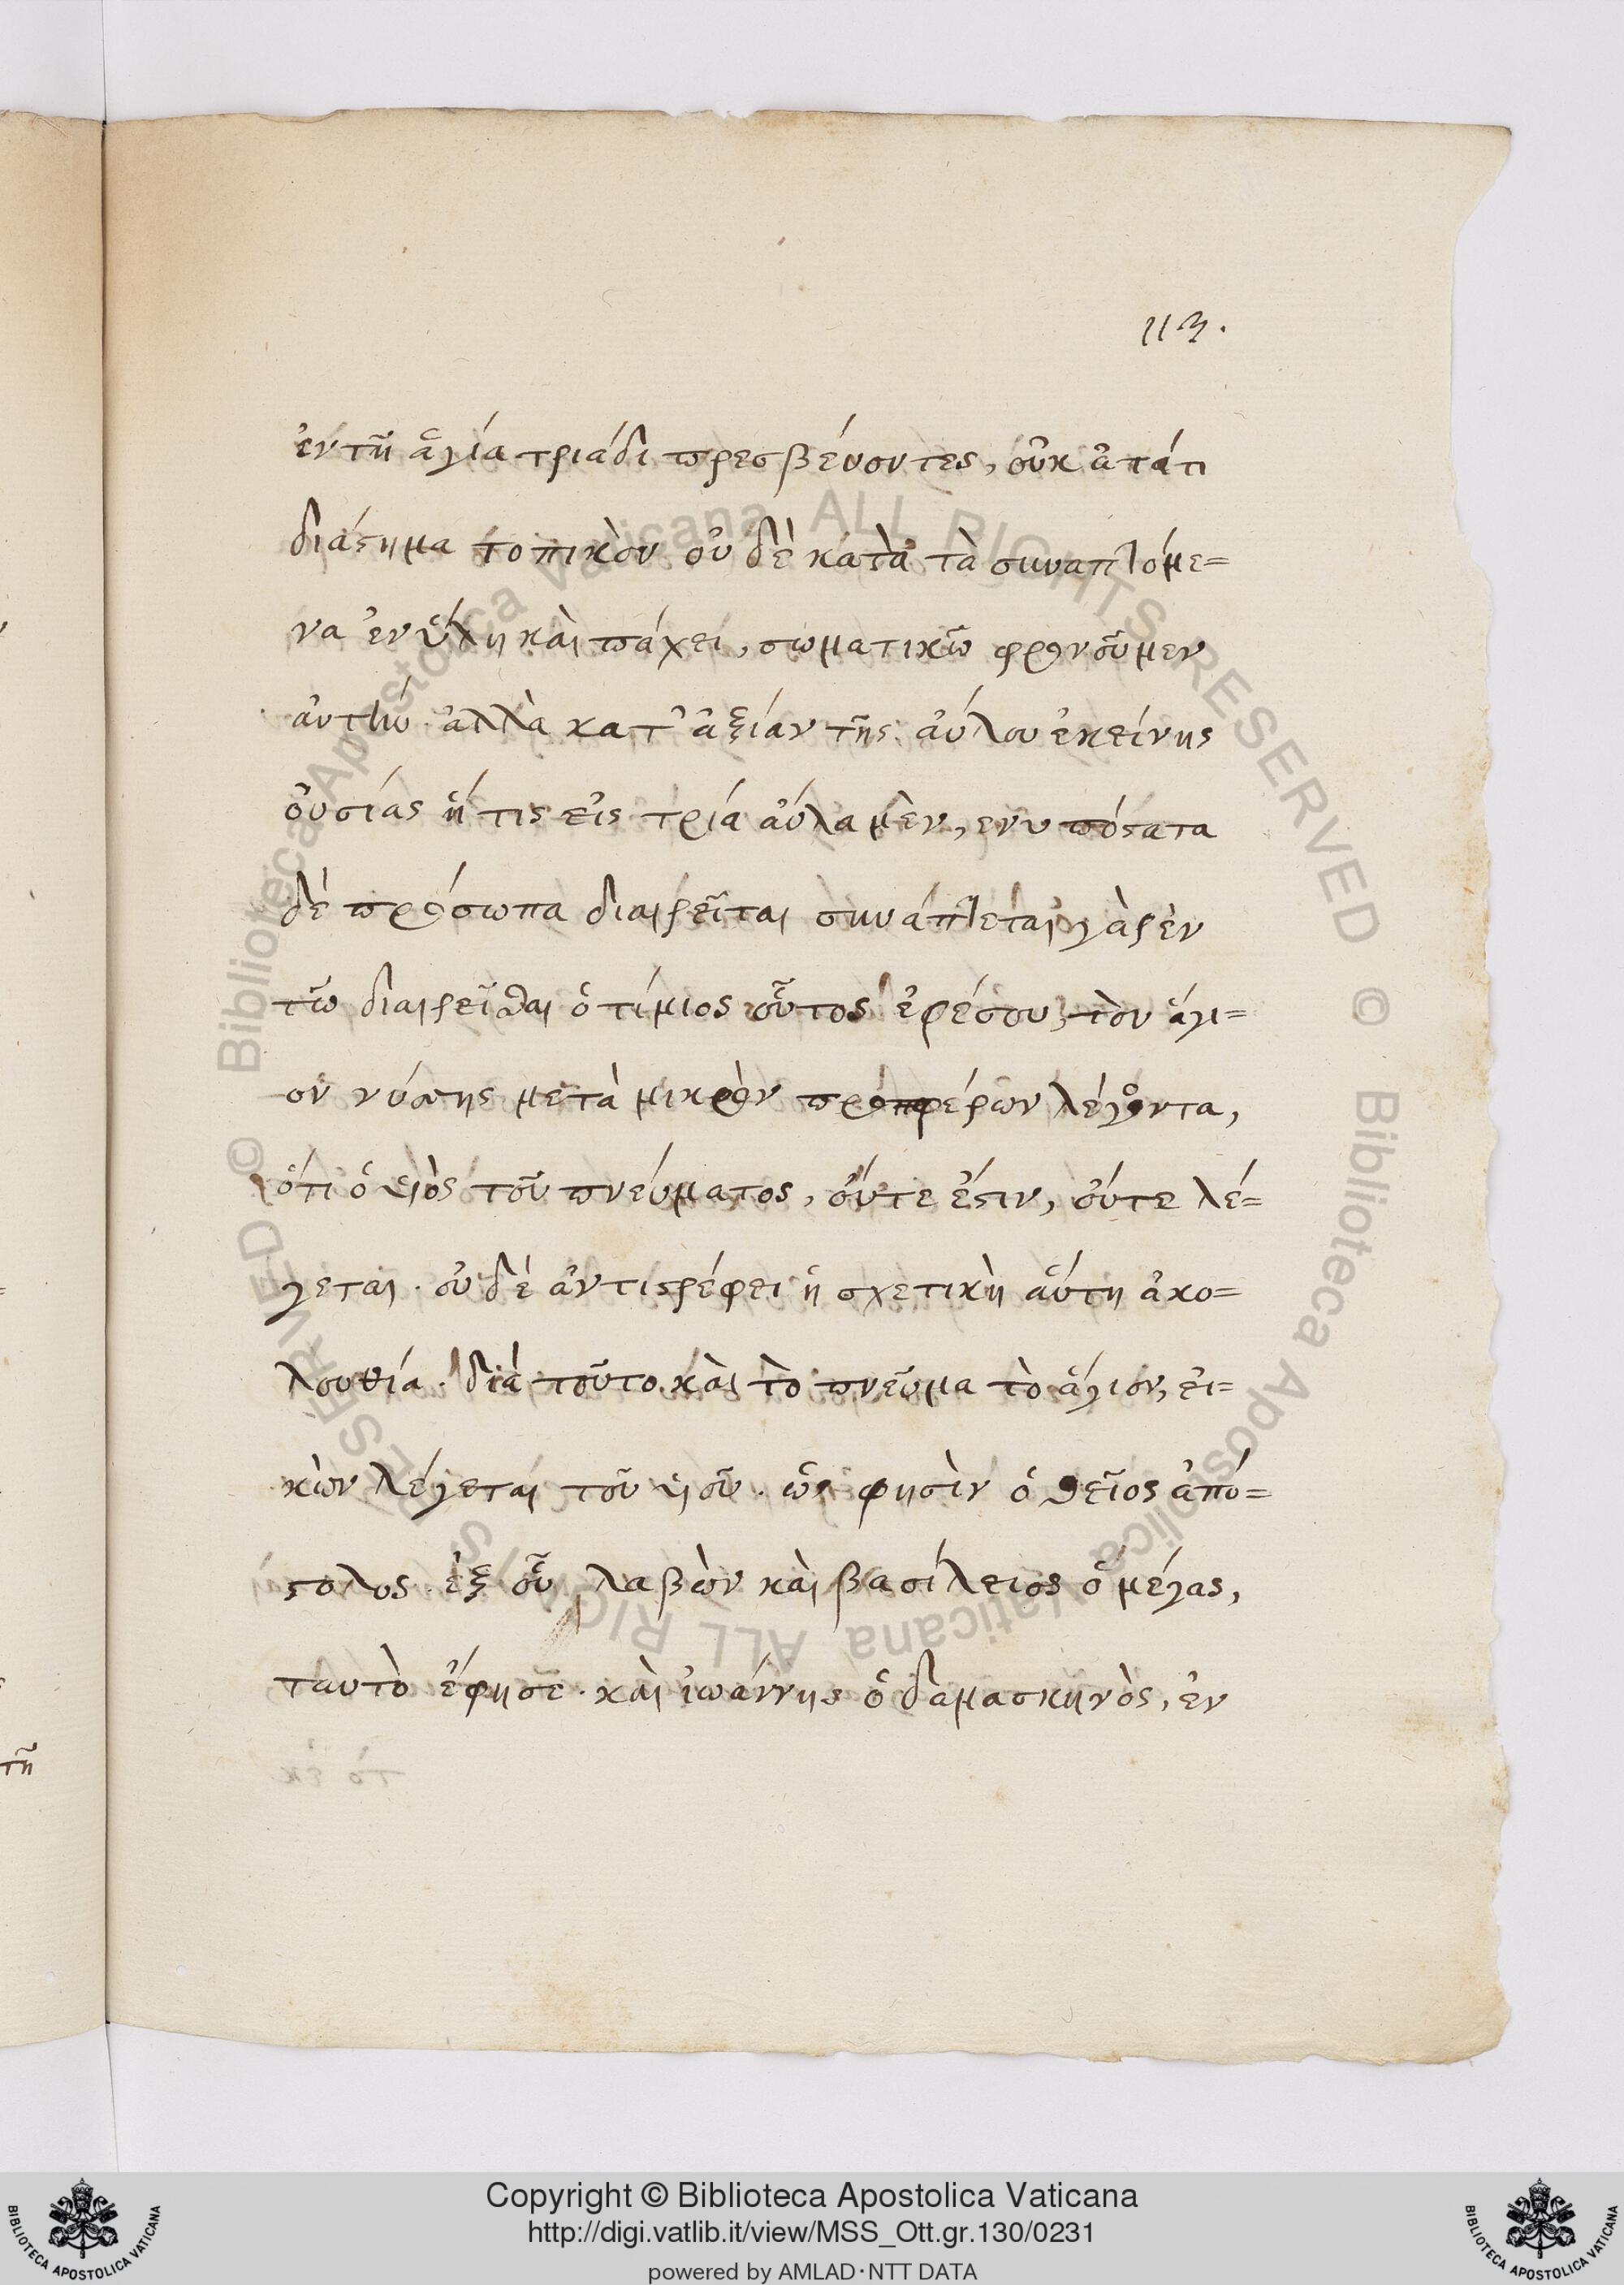 113.
ἐν τῆ ἁγία τριάδι πρεσβεύοντες, οὐ κατά τι
διάστημα τοπικὸν οὐδὲ κατὰ τὰ συναπτόμε=
να ἐν ὕλη καὶ πάχει, σωματικῶ φρονοῦμεν
αὐτὴν· ἀλλὰ κατ' ἀξίαν τῆς ἀύλου ἐκείνης
οὐσίας ἥ τις εἰς τρία ἀύλα μὲν, ενυπόστατα
δέ πρόσωπα διαιρεῖται συνάπτεται γὰρ ἐν
τῶ διαιρεῖσθαι ὁ τίμιος οὗτος ἐφέσου, τὸν ἅγι=
ον νύσης μετὰ μικρὸν προφέρων λέγοντα,
ὅτι ὁ υἱὸς τοῦ πνεύματος, οὔτε ἔστιν, οὔτε λέ=
γεται· οὐδὲ ἀντιστρέφει ἡ σχετικὴ αὕτη ἀκο=
λουθία· διὰ τοῦτο καὶ τὸ πνεῦμα τὸ ἅγιον, εἰ=
κὼν λέγεται τοῦ υἱοῦ· ὥς φησὶν ὁ θεῖος ἀπό=
στολος· ἐξ οὗ λαβὼν καὶ βασίλειος ὁ μέγας,
ταυτὸ ἔφησε· καὶ ἰωάννης ὁ δαμασκηνὸς, ἐν
τῆ
© Biblioteca Apostolica Vaticana ALL RIGHTS RESERVED © Biblioteca Apostolica Vaticana ALL RIGHTS RESERVED
Copyright © Biblioteca Apostolica Vaticana
http://digi.vatlib.it/view/MSS_Ott.gr.130/0231
powered by AMLAD·NTT DATA
BIBLIOTECA APOSTOLICA VATICANA
BIBLIOTECA APOSTOLICA VATICANA